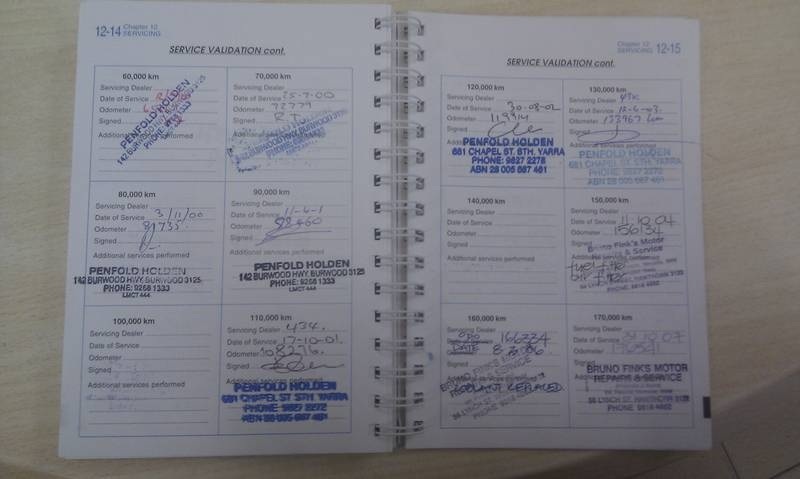 12-14 Chapter 12
SERVICING
SERVICE VALIDATION cont.
60,000 km
Servicing Dealer
Date of Service
Odometer
Signed
Additional services performed
PENFOLD HOLDEN
142 BURWOOD HWY, BURWOOD 3125
PHONE: 9268 1333
70,000 km
Servicing Dealer
Date of Service 25-7-00
Odometer 72779
Signed
Additional services performed
BURWOOD HWY, BURWOOD 3125
80,000 km
Servicing Dealer
Date of Service 3/11/00
Odometer 81735
Signed
Additional services performed
PENFOLD HOLDEN
142 BURWOOD HWY, BURWOOD 3125
PHONE: 9268 1333
LMCT 444
90,000 km
Servicing Dealer
Date of Service 11-6-1
Odometer
Signed
Additional services performed
PENFOLD HOLDEN
142 BURWOOD HWY, BURWOOD 3125
PHONE: 9268 1333
LMCT 444
100,000 km
Servicing Dealer
Date of Service
Odometer
Signed
Additional services performed
110,000 km
Servicing Dealer 434.
Date of Service 17-10-01.
Odometer 108276.
Signed
Additional services performed
PENFOLD HOLDEN
681 CHAPEL ST. STH. YARRA
PHONE: 9827 2272
ABN 28 005 667 461
Chapter 12 12-15
SERVICING
SERVICE VALIDATION cont.
120,000 km
Servicing Dealer
Date of Service 30-08-02
Odometer 119914
Signed
Additional services performed
PENFOLD HOLDEN
681 CHAPEL ST. STH. YARRA
PHONE: 9827 2278
ABN 28 005 667 461
130,000 km
Servicing Dealer
Date of Service 12-6-03.
Odometer 133967 km
Signed
Additional services performed
PENFOLD HOLDEN
681 CHAPEL ST. STH. YARRA
PHONE: 9827 2272
ABN 28 005 667 461
140,000 km
Servicing Dealer
Date of Service
Odometer
Signed
Additional services performed
150,000 km
Servicing Dealer
Date of Service 11-10-04
Odometer 156134
Signed
Bruno Fink's Motor
& Service
160,000 km
Servicing Dealer ODO 166234
Date of Service DATE
Odometer
Signed
Additional services performed
COOLANT REPLACED
170,000 km
Servicing Dealer
Date of Service
Odometer
Signed
BRUNO FINK'S MOTOR
REPAIRS & SERVICE
56 LYNCH ST, HAWTHORN 3122
PHONE: 9818 4662